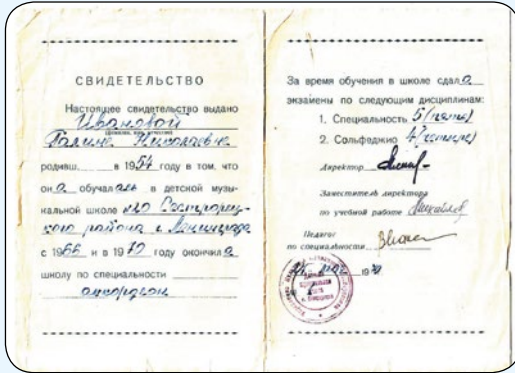 СВИДЕТЕЛЬСТВО
Настоящее свидетельство выдано
Ивановой
(фамилия, имя, отчество)
Галине Николаевне
родивш. в 1954 году в том, что
она обучалась в детской музы-
кальной школе Сестрорец-
кого района г. Ленинграда
с 1966 и в 1970 году окончила
школу по специальности
аккордеон
За время обучения в школе сдала
экзамены по следующим дисциплинам:
1. Специальность 5 (пять)
2. Сольфеджио 4 (четыре)
Директор
Заместитель директора
по учебной работе Михайлов
Педагог
по специальности
мая 1970